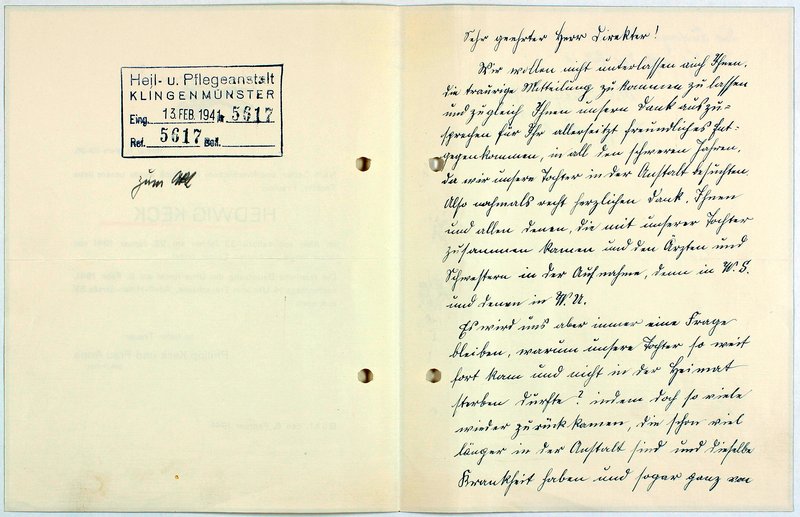 Heil- u. Pflegeanstalt
KLINGENMÜNSTER
Eing. 13. FEB. 1941 5617
Ref. 5617 Beil.
zum Akt
Sehr geehrter Herr Direktor!
Wir wollen nicht unterlassen auch Ihnen,
die traurige Mitteilung zu kommen zu lassen
und zugleich Ihnen unsern Dank auszu-
sprechen für Ihr allerseitzt freundliches Ent-
gegenkommen, in all den schweren Jahren,
da wir unsere Tochter in der Anstalt besuchten.
Also nochmals recht herzlichen Dank, Ihnen
und allen denen, die mit unserer Tochter
zusammen kamen und den Ärzten und
Schwestern in der Aufnahme, denn in W. S.
und denen in W. U.
Es wird uns aber immer eine Frage
bleiben, warum unsere Tochter so weit
fort kam und nicht in der Heimat
sterben durfte? indem doch so viele
wieder zurückkamen, die schon viel
länger in der Anstalt sind und dieselbe
Krankheit haben und sogar ganz von
HEDWIG KECK